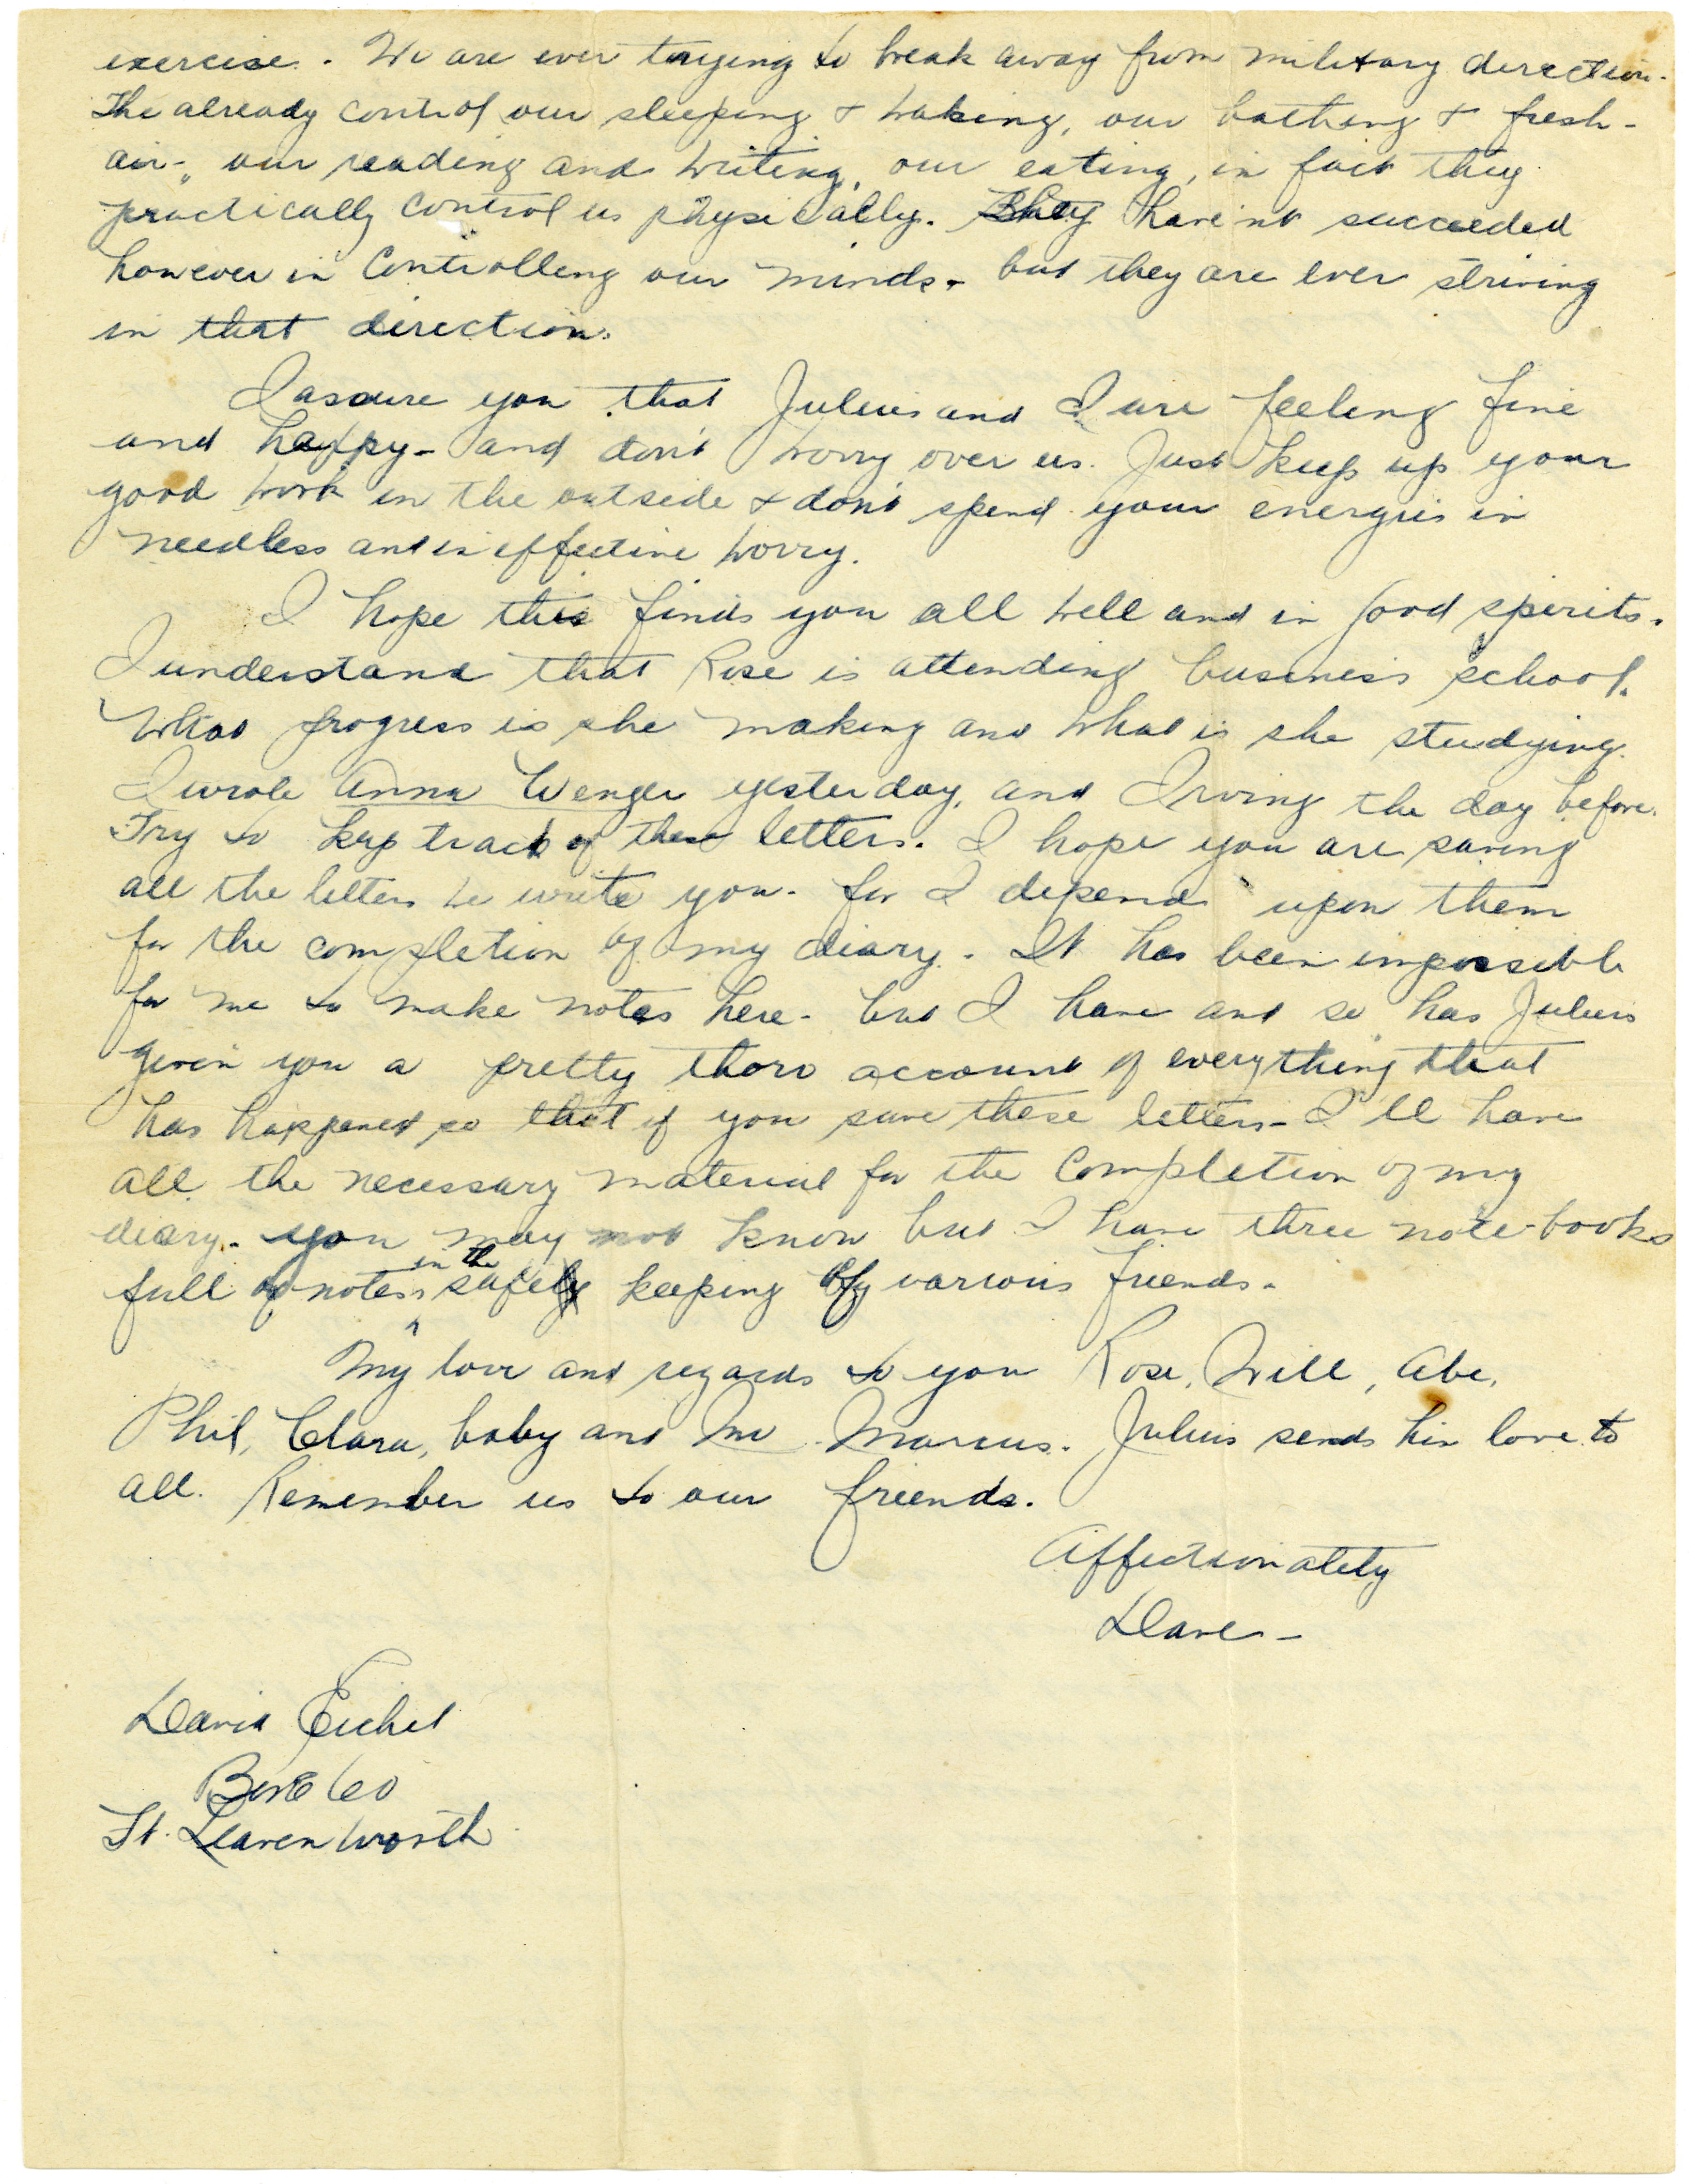 exercise. We are ever trying to break away from military direction.
The already control our sleeping & waking, our bathing & fresh-
air-, our reading and writing, our eating, in fact they
practically control us physically. They have'nt succeeded
however in controlling our minds- but they are ever striving
in that direction.
I assure you that Julius and I are feeling fine
and happy- and don't worry over us. Just keep up your
good work in the outside & don't spend your energies in
needless and ineffective worry.
I hope this finds you all well and in good spirits.
I understand that Rose is attending business school.
What progress is she making and what is she studying.
I wrote Anna Wenger yesterday, and Irving the day before.
Try to keep track of these letters. I hope you are saving
all the letters we write you- for I depend upon them
for the completion of my diary. It has been impossible
for me to make notes here- but I have and so has Julius
given you a pretty thoro account of everything that
has happened so that if you save these letters- I'll have
all the necessary material for the completion of my
diary. you may not know but I have three note-books
full of notes in the safe keeping of various friends.
My love and regards to you Rose, Will, Abe,
Phil, Clara, baby and Mr. Marcus. Julius sends his love to
all. Remember us to our friends.
Affectionately
Dave-
David Eichel
Box 60
Ft. Leavenworth